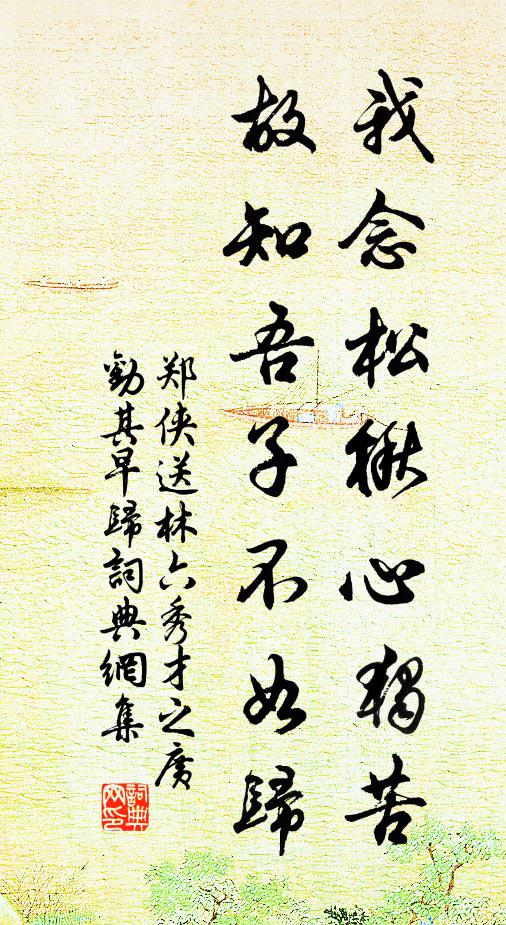 我念松楸心獨苦
故知吾子不如歸
郑侠送林六秀才之廣
勸其早歸詞典網集
詞典网印